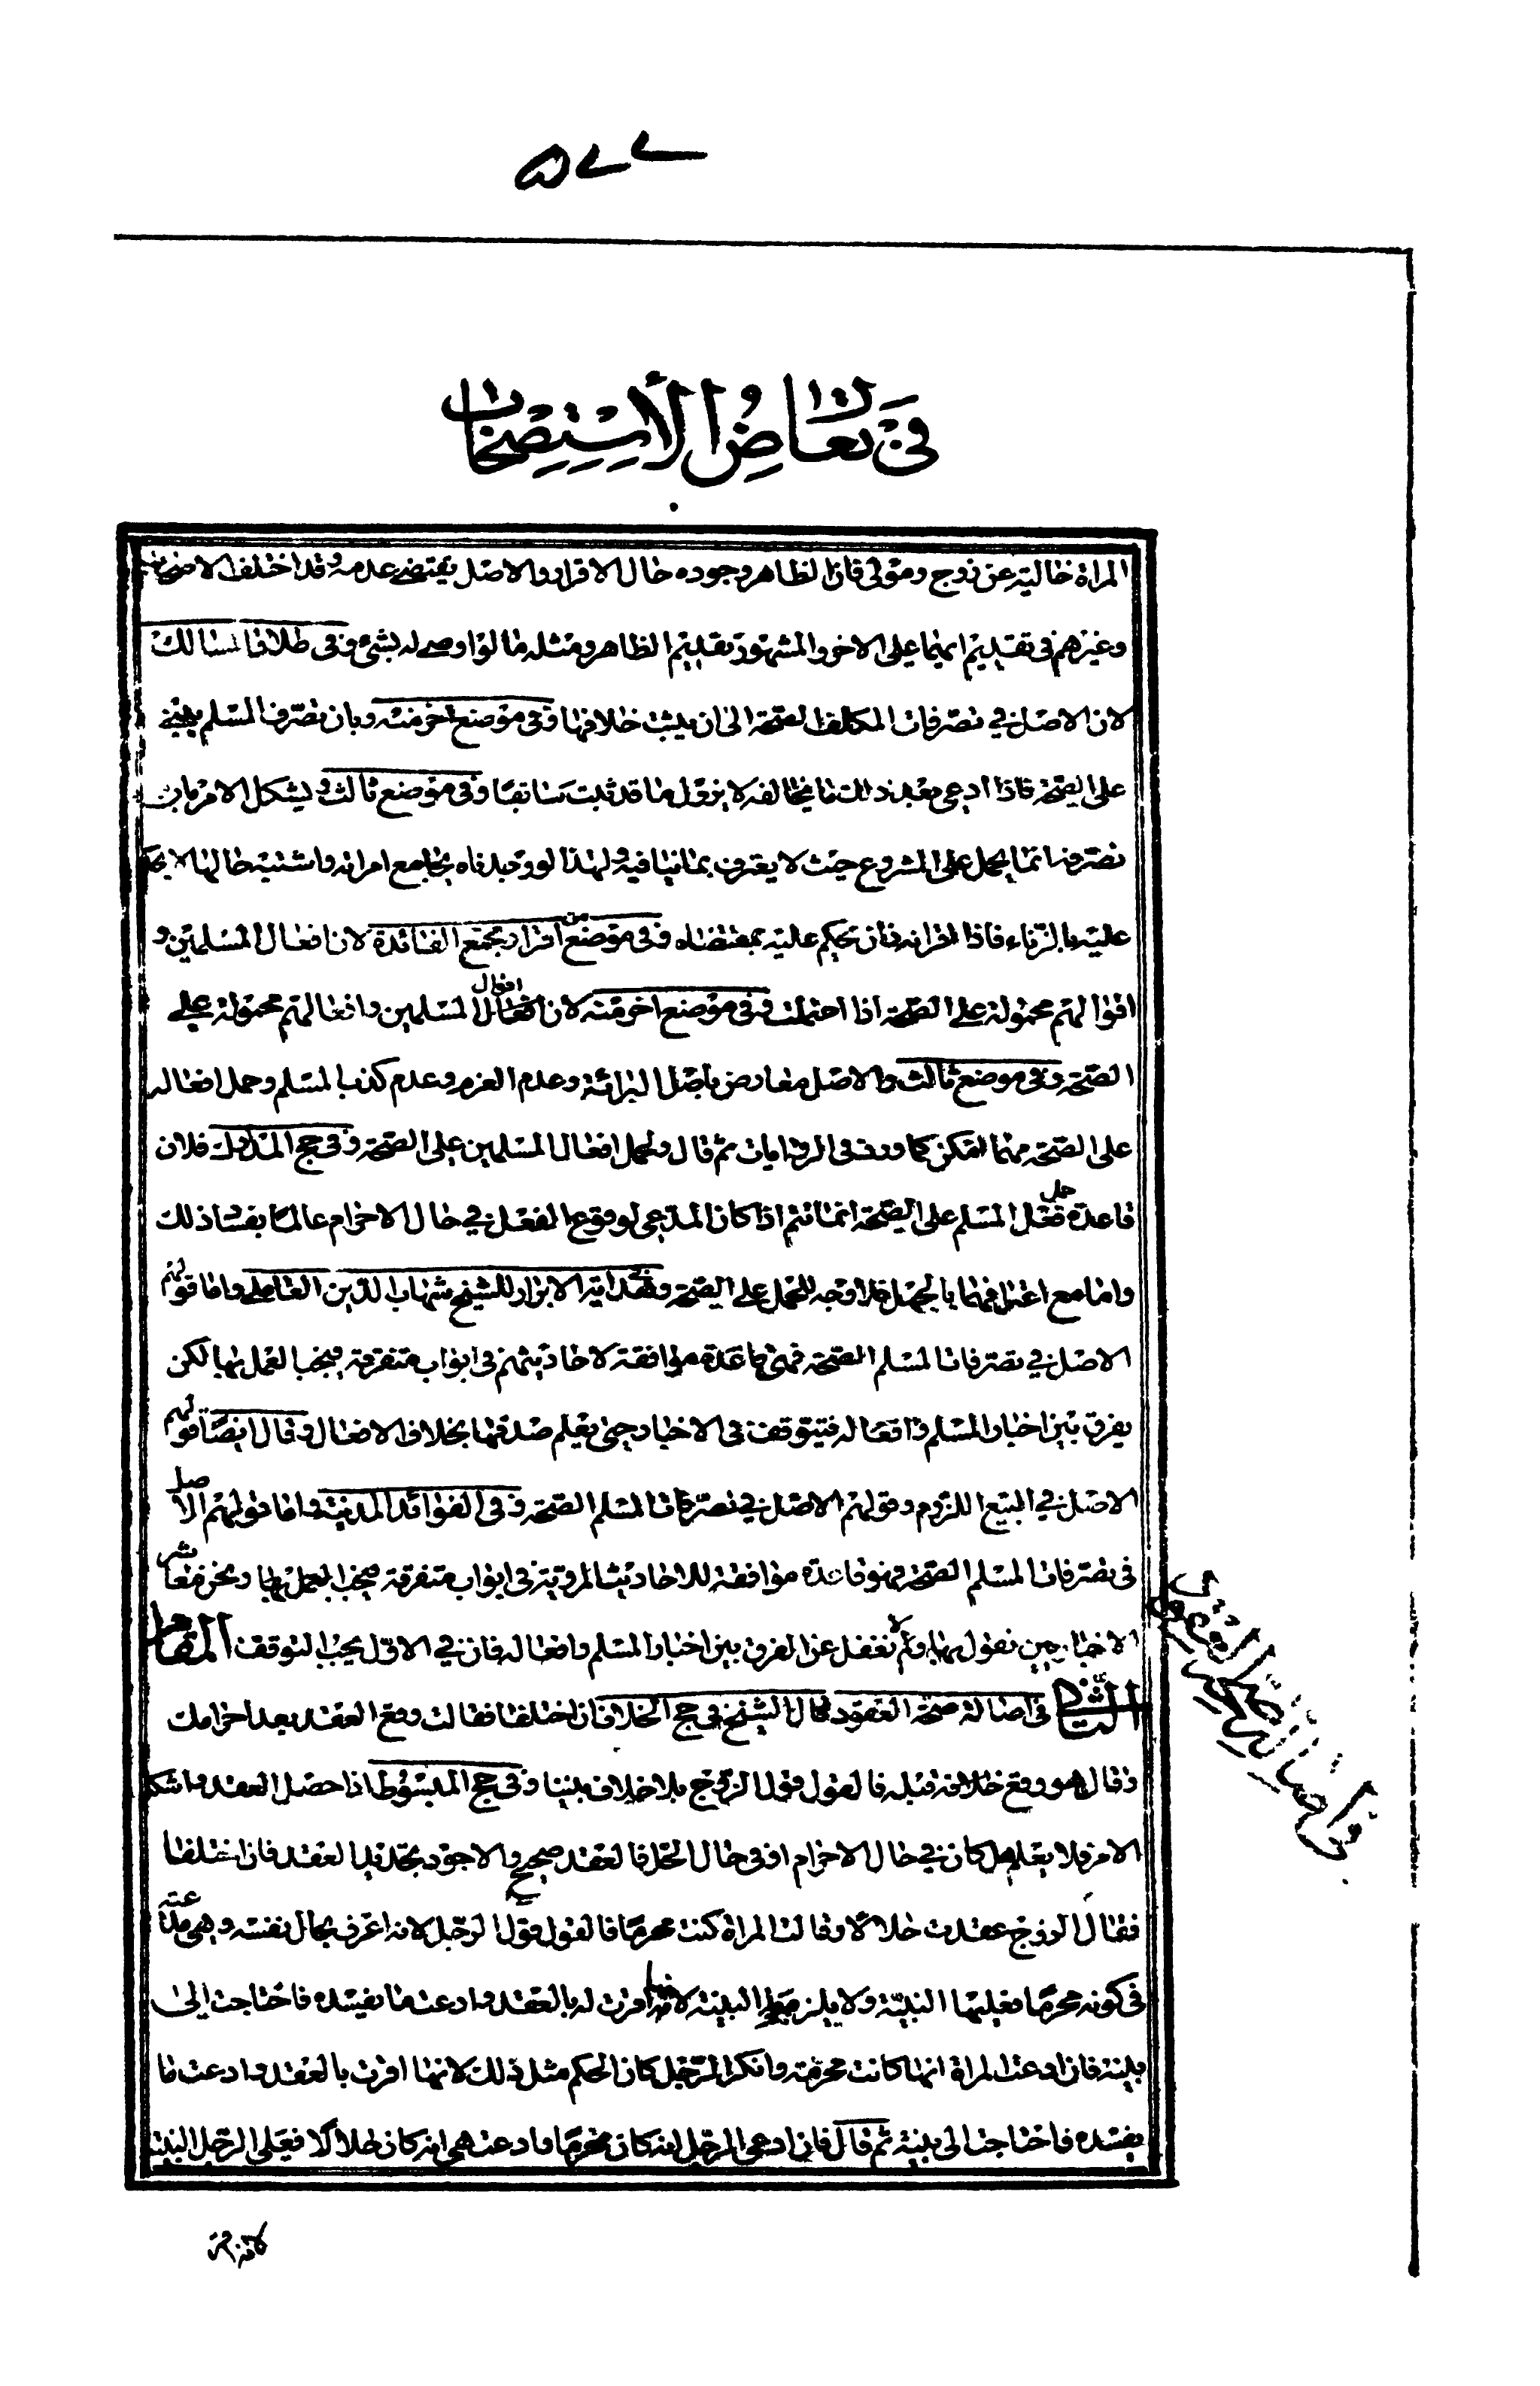 ۵۷۷
في تعارض الاستصحاب
المراة خالية عن زوج ومولى فان الظاهر وجوده حال الاقرار والاصل يقتضي عدمه وقد اختلف الاصحاب
وغيرهم في تقديم ايهما على الاخر والمشهور تقديم الظاهر ومثله ما لو اوصى له بشئ وفي طلاق المسالك
لان الاصل في تصرفات المكلف الصحة الى ان يثبت خلافها وفي موضع اخر منه وبان تصرف المسلم يبنى
على الصحة فاذا ادعى بعد ذلك ما يخالفه لا يزول ما قد ثبت سابقا وفي موضع ثالث ويشكل الامر بان
تصرفه انما يحمل على المشروع حيث لا يعترف بما ينافيه ولهذا لو وجدناه يجامع امراة واشتبه حالها لا يحكم
عليه بالزناء فاذا اقر انه زان حكم عليه بمقتضاه وفي موضع من اقرار مجمع الفائدة لان افعال المسلمين و
اقوالهم محمولة على الصحة اذا احتملت وفي موضع اخر منه لان اقوال المسلمين وافعالهم محمولة على
الصحة وفي موضع ثالث والاصل معارض باصل البرائة وعدم العزم وعدم كذب المسلم وحمل افعاله
على الصحة مهما امكن كما ورد في الروايات ثم قال ولحمل افعال المسلمين على الصحة وفي حج المدارك فلان
قاعدة حمل فعل المسلم على الصحة انما تتم اذا كان المدعي لوقوع الفعل في حال الاحرام عالما بفساد ذلك
واما مع اعترافهما بالجهل فلا وجه للحمل على الصحة وفي هداية الابرار للشيخ شهاب الدين العاملي واما قولهم
الاصل في تصرفات المسلم الصحة فهي قاعدة موافقة لاحاديثهم في ابواب متفرقة فيجب العمل بها لكن
يفرق بين اخبار المسلم وافعاله فيتوقف في الاخبار حتى يعلم صدقها بخلاف الافعال وقال ايضا قولهم
الاصل في البيع اللزوم وقولهم الاصل في تصرفات المسلم الصحة وفي الفوائد المدنية واما قولهم الاصل
في تصرفات المسلم الصحة فهو قاعدة موافقة للاحاديث المروية في ابواب متفرقة فيجب العمل بها ونحن معاشر
الاخباريين نقول بها ولا تغفل عن الفرق بين اخبار المسلم وافعاله فان في الاول يجب التوقف المقام
الثاني في اصالة صحة العقود قال الشيخ في حج الخلاف فان اختلفا فقالت وقع العقد بعد احرامك
وقال هو وقع خلافه قبله فالقول قول الزوج بلا خلاف بيننا وفي حج المبسوط اذا حصل العقد واشكل
الامر فلا يعلم هل كان في حال الاحرام او في حال الحل فالعقد صحيح والاجود تجديد العقد فان اختلفا
فقال الزوج عقدت حلالا وقالت المراة كنت محرما فالقول قول الرجل لانه اعرف بحال نفسه وهي مدعية
في كونه محرما فعليها البينة ولا يلزمه البينة لانها اقرت له بالعقد وادعت ما يفسده فاحتاجت الى
بينة فان ادعت المراة انها كانت محرمة وانكر الرجل كان الحكم مثل ذلك لانها اقرت بالعقد وادعت ما
يفسده فاحتاجت الى بينة ثم قال فان ادعى الرجل انه كان محرما وادعت هي انه كان حلالا فعلى الرجل البينة